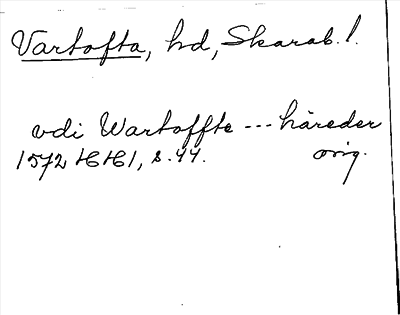 Vartofta, hd, Skarab. l.
vdi Wartoffte --- häreder
1572 HH1, s. 44. orig.